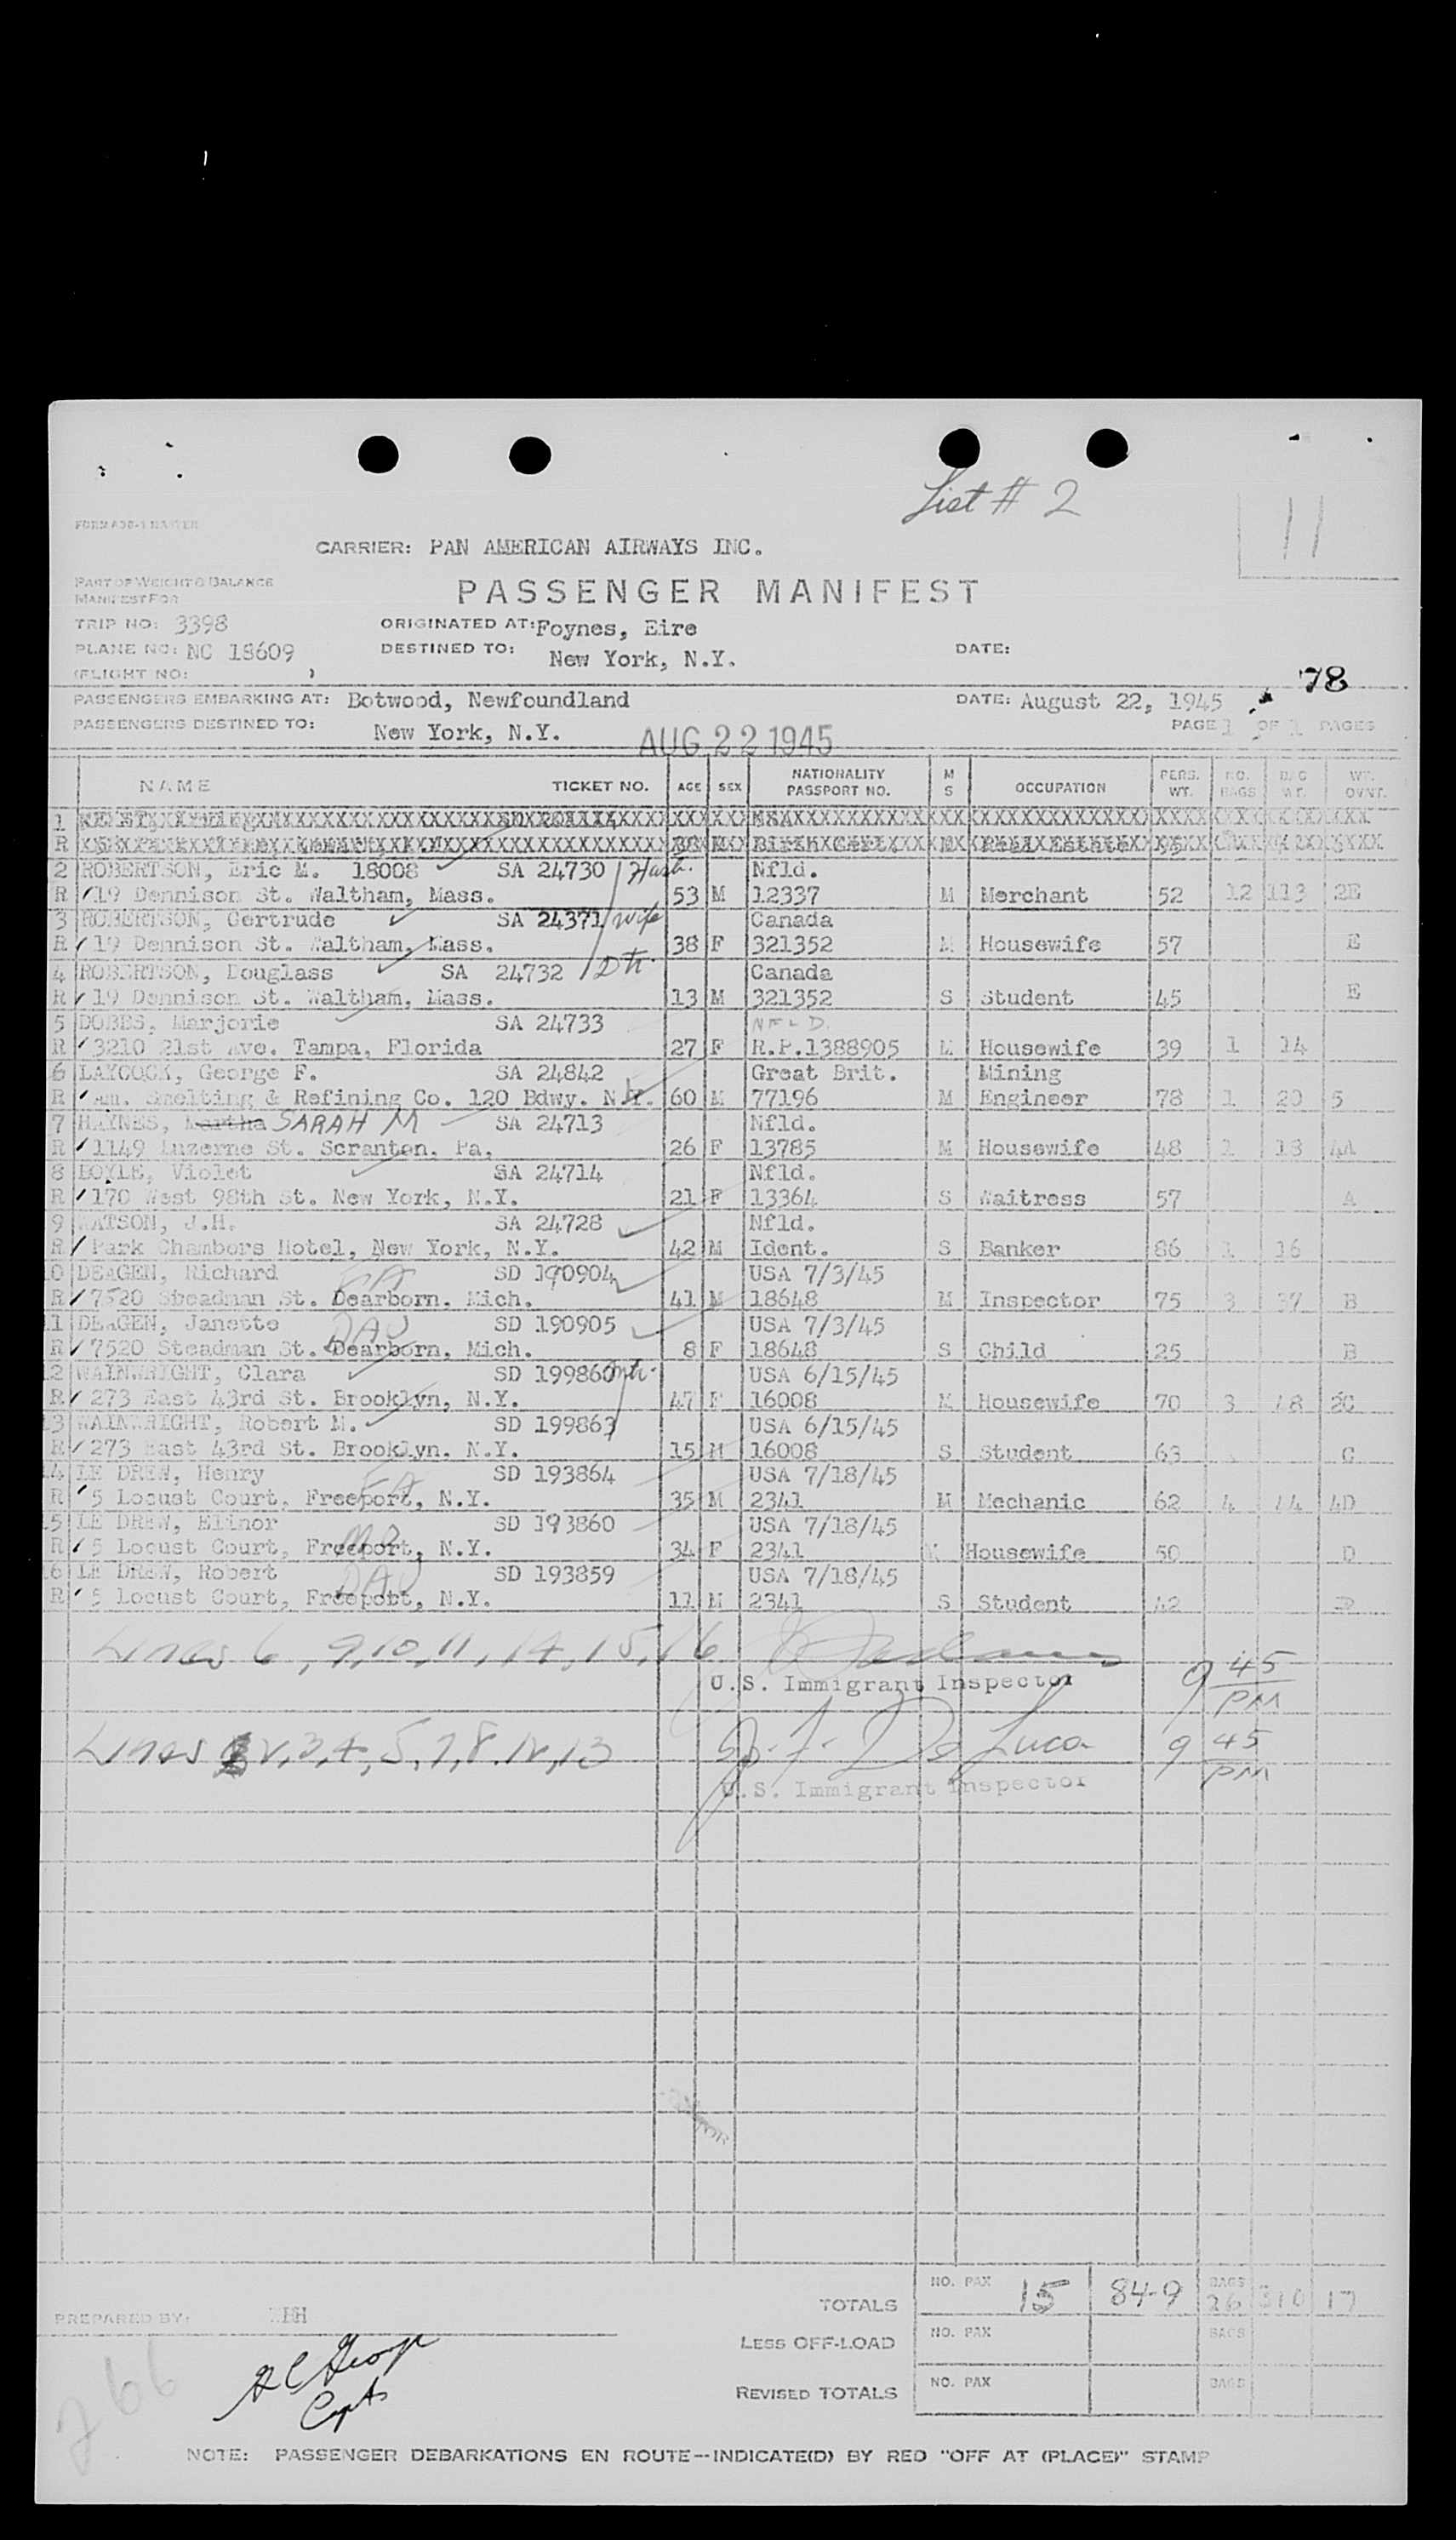 List # 2
11
CARRIER: PAN AMERICAN AIRWAYS INC.
PART OF WEIGHT & BALANCE
MANIFEST FOR
PASSENGER MANIFEST
TRIP NO: 3398 ORIGINATED AT: Foynes, Eire
PLANE NO: NC 18609 DESTINED TO: New York, N.Y. DATE:
(FLIGHT NO: )
78
PASSENGERS EMBARKING AT: Botwood, Newfoundland DATE: August 22, 1945
PASSENGERS DESTINED TO: New York, N.Y. AUG 22 1945 PAGE 1 OF 1 PAGES
NAME TICKET NO. AGE SEX NATIONALITY PASSPORT NO. M S OCCUPATION PERS. WT. NO. BAGS BAG WT. WT. OVWT.
1
R
2 ROBERTSON, Eric M. 18008 SA 24730 Husb. Nfld.
R 19 Dennison St. Waltham, Mass. 53 M 12337 M Merchant 52 12 113 2E
3 ROBERTSON, Gertrude SA 24371 wife Canada
R 19 Dennison St. Waltham, Mass. 38 F 321352 M Housewife 57 E
4 ROBERTSON, Douglass SA 24732 Dtr. Canada
R 19 Dennison St. Waltham, Mass. 13 M 321352 S Student 45 E
5 DOBBS, Marjorie SA 24733 NFLD.
R 3210 21st Ave. Tampa, Florida 27 F R.P.1388905 M Housewife 39 1 14
6 LAYCOCK, George F. SA 24842 Great Brit. Mining
R Am. Smelting & Refining Co. 120 Bdwy. N.Y. 60 M 77196 M Engineer 78 1 20 5
7 HAYNES, Martha SARAH M SA 24713 Nfld.
R 1149 Luzerne St. Scranton, Pa, 26 F 13785 M Housewife 48 1 18 4A
8 BOYLE, Violet SA 24714 Nfld.
R 170 West 98th St. New York, N.Y. 21 F 13364 S Waitress 57 A
9 WATSON, J.H. SA 24728 Nfld.
R Park Chambers Hotel, New York, N.Y. 42 M Ident. S Banker 86 1 16
0 DEAGEN, Richard SD 190904 USA 7/3/45
R 7520 Steadman St. Dearborn. Mich. 41 M 18648 M Inspector 75 3 37 B
1 DEAGEN, Janette DAU SD 190905 USA 7/3/45
R 7520 Steadman St. Dearborn, Mich. 8 F 18648 S Child 25 B
2 WAINWRIGHT, Clara SD 199860 mtr. USA 6/15/45
R 273 East 43rd St. Brooklyn, N.Y. 47 F 16008 M Housewife 70 3 48 2C
3 WAINWRIGHT, Robert M. SD 199863 USA 6/15/45
R 273 East 43rd St. Brooklyn. N.Y. 15 M 16008 S Student 63 C
4 LE DREW, Henry FA SD 193864 USA 7/18/45
R 5 Locust Court, Freeport, N.Y. 35 M 2341 M Mechanic 62 4 44 4D
5 LE DREW, Elinor MO SD 193860 USA 7/18/45
R 5 Locust Court, Freeport, N.Y. 34 F 2341 M Housewife 50 D
6 LE DREW, Robert DAU SD 193859 USA 7/18/45
R 5 Locust Court, Freepott, N.Y. 11 M 2341 S Student 42 D
Lines 6, 9, 10, 11, 14, 15, 16
U.S. Immigrant Inspector 9 45 PM
Lines 2, 3, 4, 5, 7, 8, 12, 13 De Luca 9 45 PM
U.S. Immigrant Inspector
TOTALS NO. PAX 15 849 BAGS 26 310 17
PREPARED BY:
LESS OFF-LOAD NO. PAX BAGS
REVISED TOTALS NO. PAX BAGS
Capt
266
NOTE: PASSENGER DEBARKATIONS EN ROUTE--INDICATE(D) BY RED "OFF AT (PLACE)" STAMP